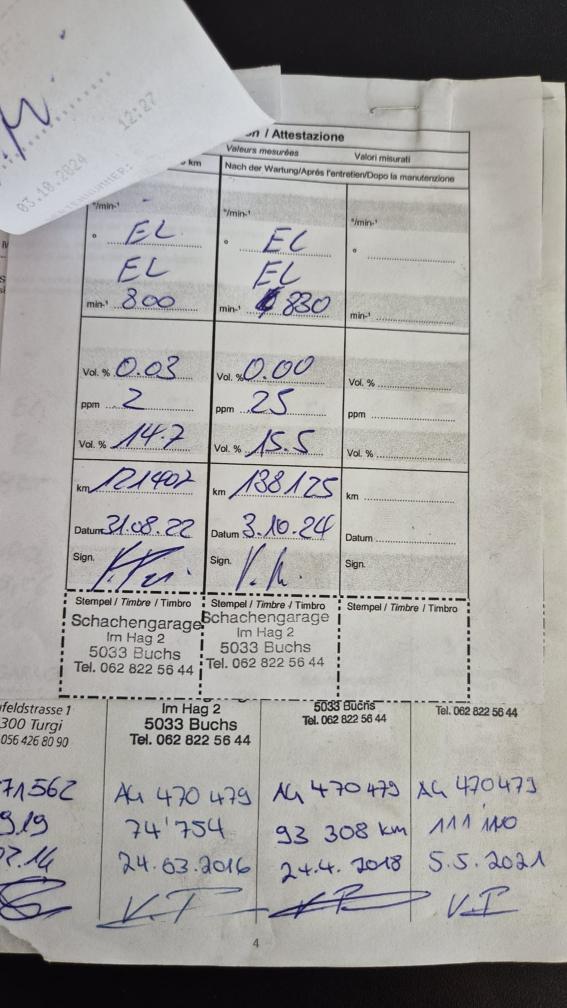 12:27
03.10.2024
n / Attestazione
Valeurs mesurées Valori misurati
km Nach der Wartung/Après l'entretien/Dopo la manutenzione
°/min-¹ °/min-¹ °/min-¹
° EL ° EL °
EL EL
min-¹ 800 min-¹ 830 min-¹
Vol. % 0.03 Vol. % 0.00 Vol. %
ppm 2 ppm 25 ppm
Vol. % 14.7 Vol. % 15.5 Vol. %
km 121402 km 138125 km
Datum 31.08.22 Datum 3.10.24 Datum
Sign. Sign. Sign.
Stempel / Timbre / Timbro Stempel / Timbre / Timbro Stempel / Timbre / Timbro
Schachengarage Schachengarage
Im Hag 2 Im Hag 2
5033 Buchs 5033 Buchs
Tel. 062 822 56 44 Tel. 062 822 56 44
feldstrasse 1 Im Hag 2 5033 Buchs Tel. 062 822 56 44
300 Turgi 5033 Buchs Tel. 062 822 56 44
056 426 80 90 Tel. 062 822 56 44
71562 AG 470 479 AG 470479 AG 470479
9.19 74'754 93 308 km 111 110
.14 24.03.2016 24.4. 2018 5.5.2021
4